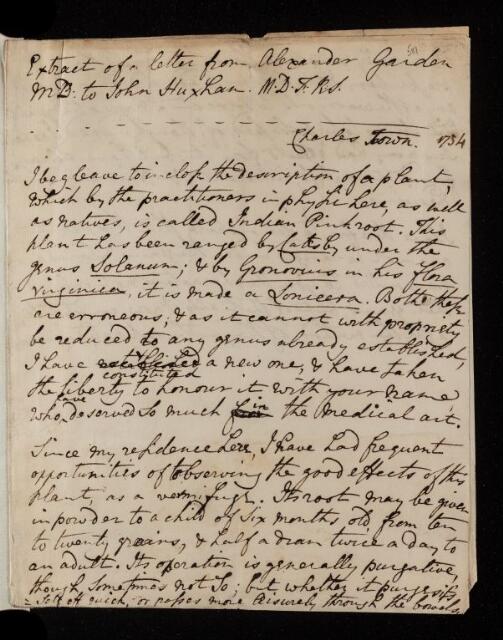 Extract of a letter from Alexander Garden
M.D. to John Huxham. M.D. F.R.S.
Charles Town. 1754
I beg leave to inclose the description of a plant,
which by the practitioners in physic here, as well
as natives, is called Indian Pinkroot. This
plant has been ranged by Catesby under the
genus Solanum; & by Gronovius in his flora
virginica, it is made a Lonicera. Both these
are erroneous; & as it cannot with propriety
be reduced to any genus already established,
I have established constituted a new one, & have taken
the liberty to honour it with your name
who have deserved so much in the medical art.
Since my residence here, I have had frequent
opportunities of observing the good effects of this
plant, as a vermifuge. Its root may be given
in powder to a child of six months old, from ten
to twenty grains, & half a dram twice a day to
an adult. Its operation is generally purgative,
though sometimes not so; but, whether it purges
itself off quick, or passes more leisurely through the bowels,